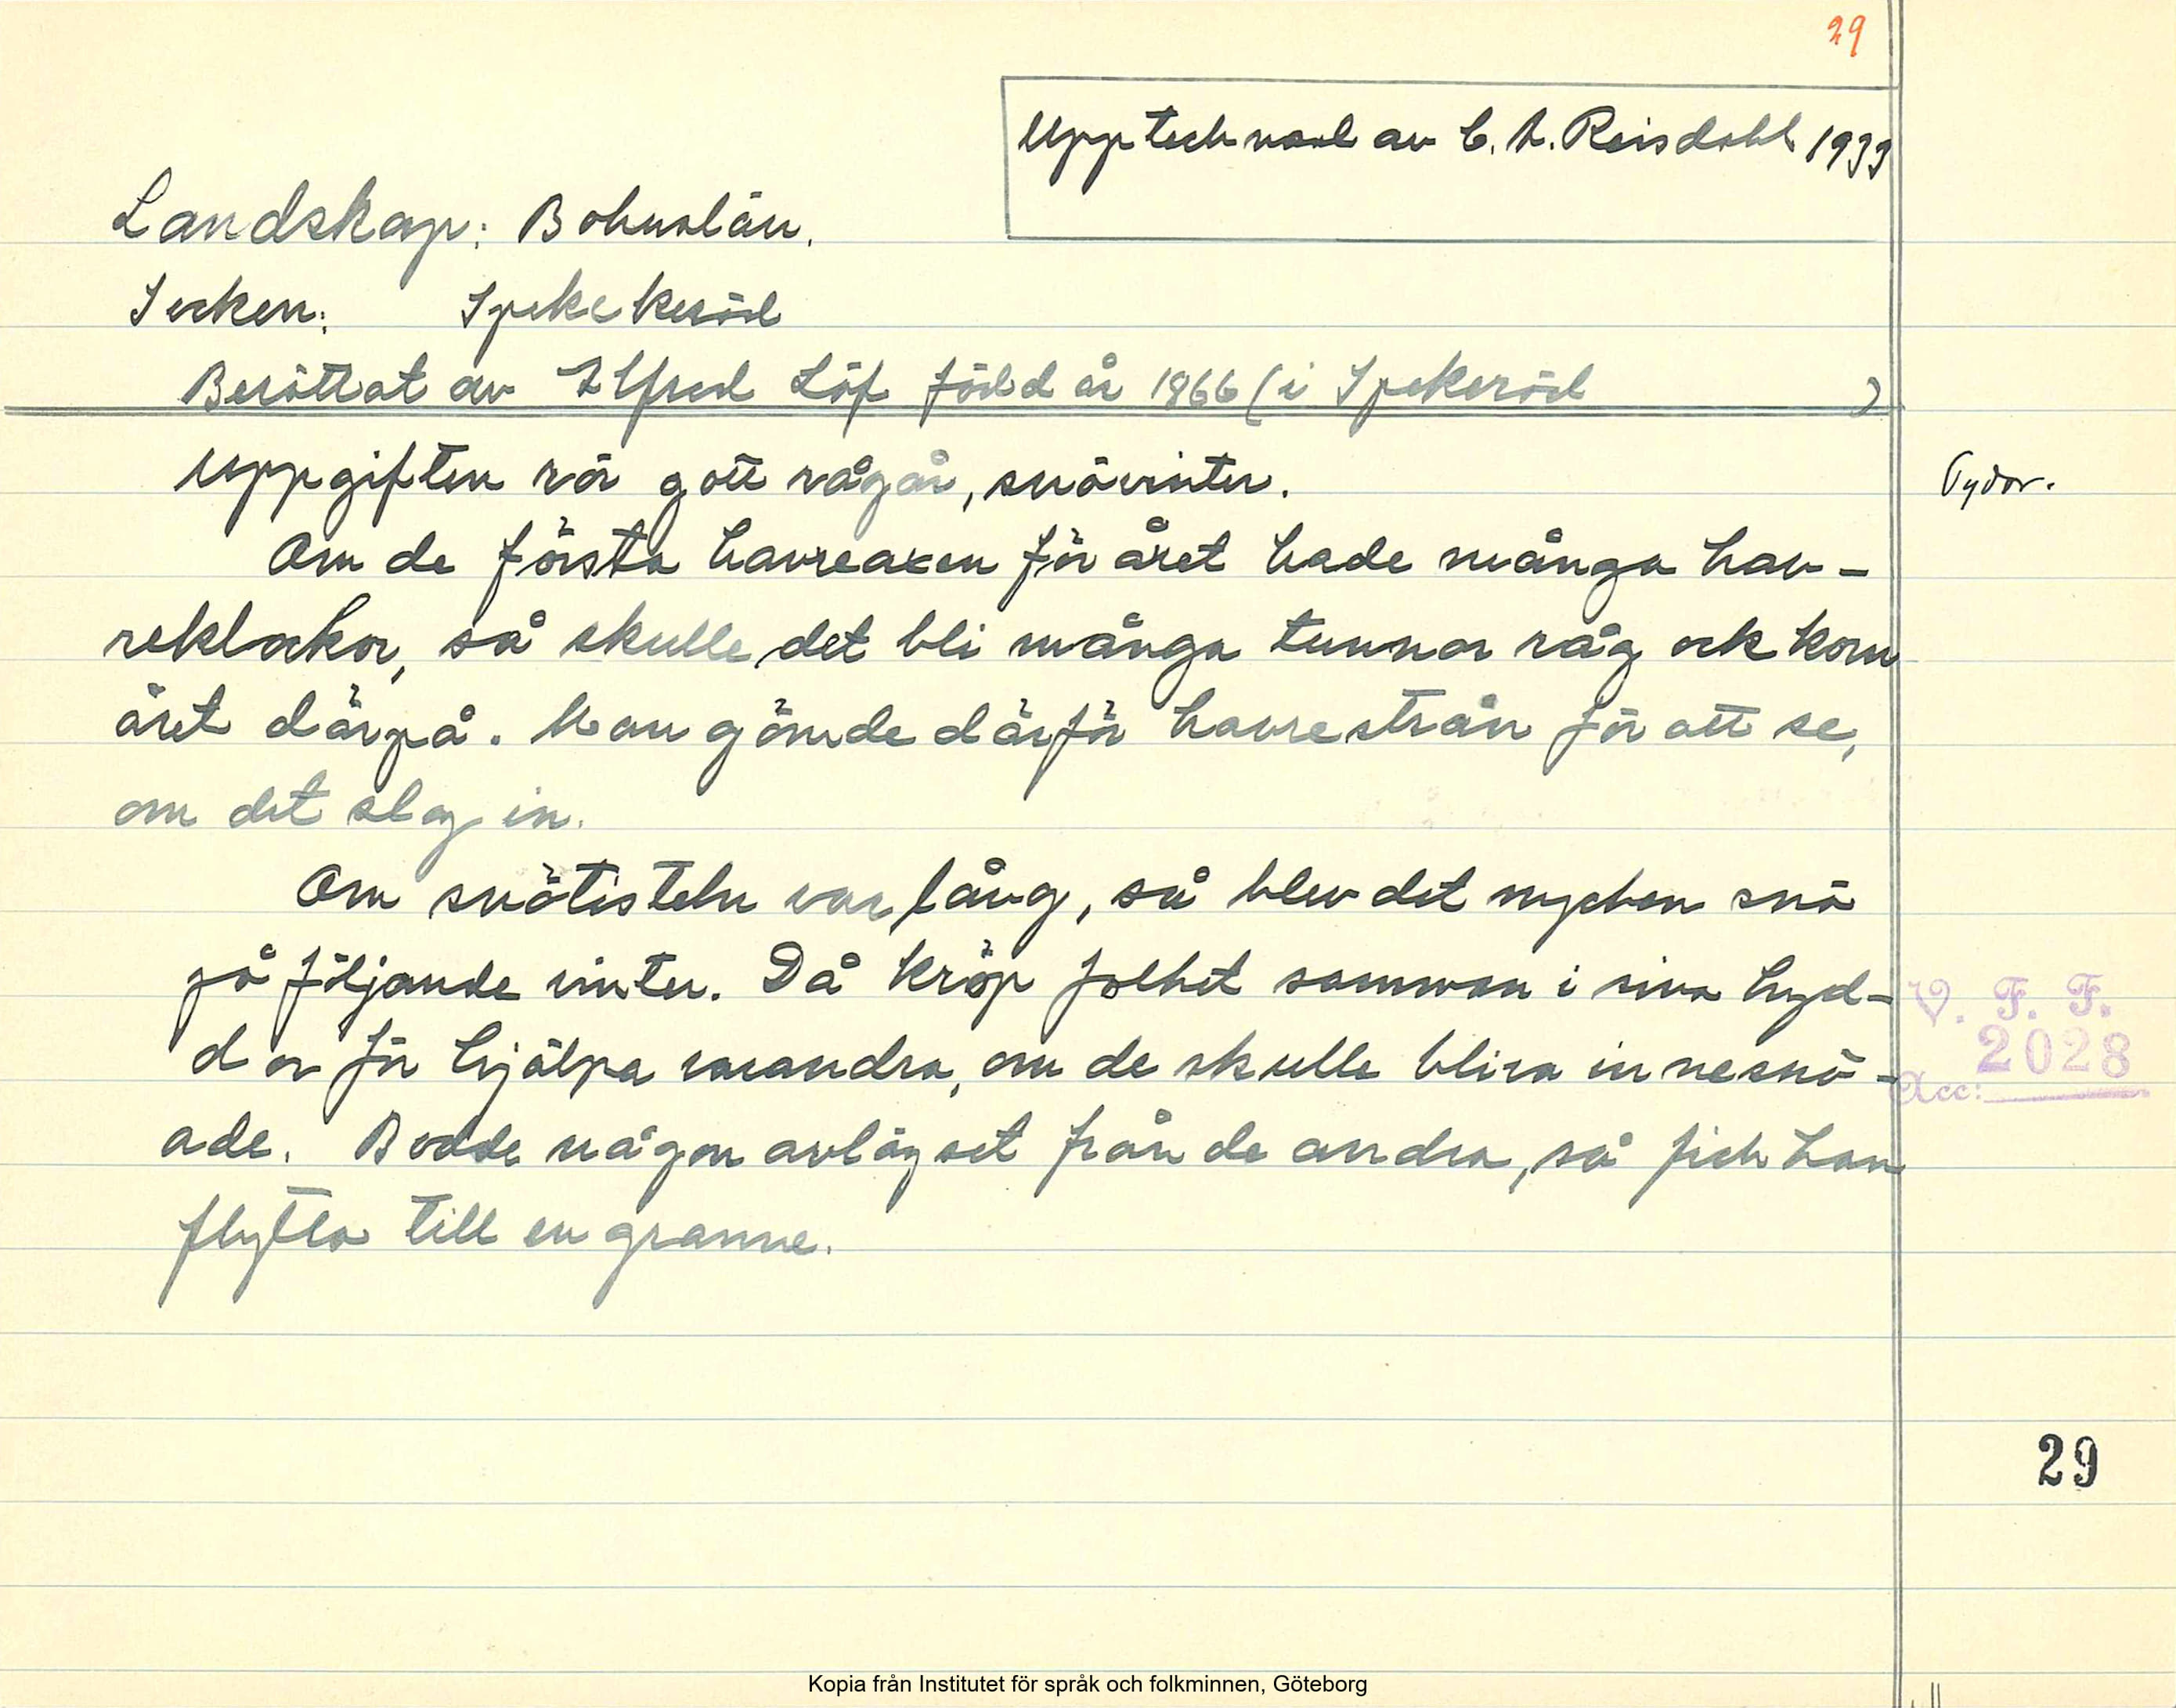 29
Upptecknad av C. A. Reisdahl 1933
Landskap: Bohuslän.
Socken: Spekekeröd
Berättat av Alfred Löf född år 1866 (i Spekeröd )
Uppgiften rör gott rågår, snövinter.
Tydor.
Om de första havreaxen för året hade många hav-
reklockor, så skulle det bli många tunnor råg och korn
året därpå. Man gömde därför havrestrån för att se,
om det slog in.
Om snötisteln var lång, så blev det mycken snö
på följande vinter. Då kröp folket samman i sina hyd-
dor för hjälpa varandra, om de skulle bliva innesnö-
ade. Bodde någon avlägset från de andra, så fick han
flytta till en granne.
V. F. F.
2028
Acc:
29
Kopia från Institutet för språk och folkminnen, Göteborg